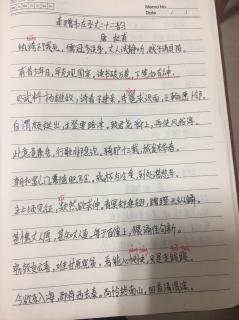 奉赠韦左丞丈二十二韵
唐 杜甫
纨绔不饿死，儒冠多误身。丈人试静听，贱子请具陈。
甫昔少年日，早充观国宾。读书破万卷，下笔如有神。
赋料扬雄敌，诗看子建亲。李邕求识面，王翰愿卜邻。
自谓颇挺出，立登要路津。致君尧舜上，再使风俗淳。
此意竟萧条，行歌非隐沦。骑驴十三载，旅食京华春。
朝扣富儿门，暮随肥马尘。残杯与冷炙，到处潜悲辛。
主上顷见征，欻然欲求伸。青冥却垂翅，蹭蹬无纵鳞。
甚愧丈人厚，甚知丈人真。每于百僚上，猥诵佳句新。
窃效贡公喜，难甘原宪贫。焉能心怏怏，只是走踆踆。
今欲东入海，即将西去秦。尚怜终南山，回首清渭滨。